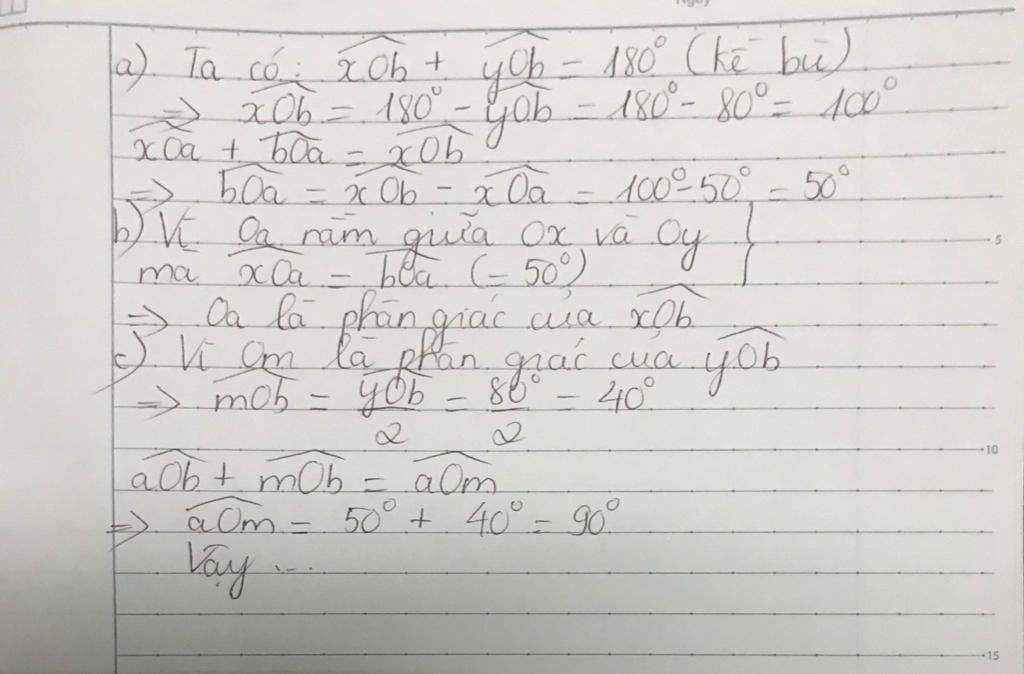 Ngày
a) Ta có: xOb + yOb = 180° (kề bù)
=> xOb = 180° - yOb = 180° - 80° = 100°
xOa + bOa = xOb
=> bOa = xOb - xOa = 100° - 50° = 50°
b) Vì Oa nằm giữa Ox và Oy }
mà xOa = bOa (= 50°)
=> Oa là phân giác của xOb
c) Vì Om là phân giác của yOb
=> mOb = yOb/2 = 80°/2 = 40°
aOb + mOb = aOm
=> aOm = 50° + 40° = 90°
Vậy ...
5
10
15